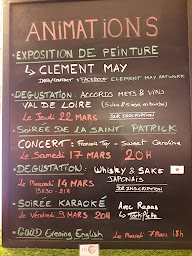 ANIMATIONS
• EXPOSITION DE PEINTURE
↳ CLEMENT MAY
INFO/CONTACT : FACEBOOK CLEMENT MAY ARTWORK
• DEGUSTATION : ACCORDS METS & VINS
VAL DE LOIRE
Le Jeudi 22 MARS SUR INSCRIPTION
• SOIREE DE LA SAINT PATRICK
CONCERT : François Tay - Sweet Caroline
Le Samedi 17 MARS 20H
• DEGUSTATION : WHISKY & SAKE
JAPONAIS
Le Mercredi 14 MARS
19H30 - 21H SUR INSCRIPTION
• SOIRÉE KARAOKÉ Avec Repas
Le Vendredi 9 MARS 20H ↳ Tartiflette
• GOOD Evening English Le Mercredi 7 Mars 18h